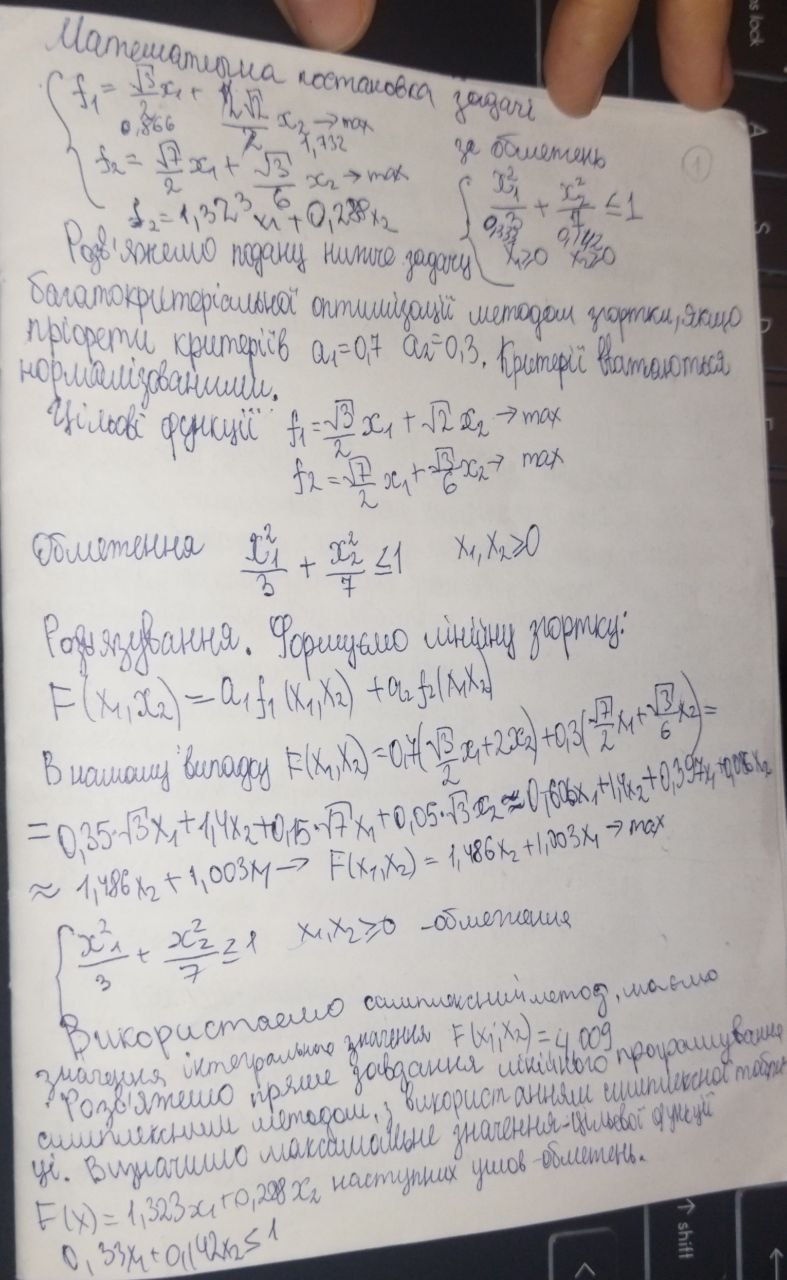 Математична постановка задачі
f₁ = √3/2 x₁ + 2√2/2 x₂ → max
0,866 1,732
за обмежень
①
f₂ = √7/2 x₁ + √3/6 x₂ → max
x₁²/3 + x₂²/7 ≤ 1
0,333 0,142
f₂ = 1,323 x₁ + 0,288x₂
x₁≥0 x₂≥0
Розв'яжемо подану нижче задачу
багатокритеріальної оптимізації методом згортки, якщо
пріорети критеріїв a₁=0,7 a₂=0,3. Критерії вважаються
нормалізованими.
Цільові функції f₁ = √3/2 x₁ + √2 x₂ → max
f₂ = √7/2 x₁ + √3/6 x₂ → max
Обмеження x₁²/3 + x₂²/7 ≤ 1 x₁, x₂ ≥ 0
Розв'язування. Формуємо лінійну згортку:
F(x₁, x₂) = a₁f₁(x₁, x₂) + a₂f₂(x₁x₂)
В нашому випадку F(x₁, x₂) = 0,7(√3/2 x₁ + 2x₂) + 0,3(√7/2 x₁ + √3/6 x₂) =
= 0,35·√3x₁ + 1,4x₂ + 0,15·√7x₁ + 0,05·√3x₂ ≈ 0,606x₁ + 1,4x₂ + 0,397x₁ + 0,086x₂
≈ 1,486x₂ + 1,003x₁ → F(x₁, x₂) = 1,486x₂ + 1,003x₁ → max
x₁²/3 + x₂²/7 ≥ 1 x₁, x₂ ≥ 0 - обмеження
Використаємо симплексний метод, маємо
значення інтегрального значення F(x₁; x₂) = 4,009
Розв'яжемо пряме завдання лінійного програмування
симплексним методом, з використанням симплексної табли
ці. Визначимо максимальне значення цільової функції
F(x) = 1,323x₁ + 0,288x₂ наступних умов-обмежень.
0,33x₁ + 0,142x₂ ≤ 1